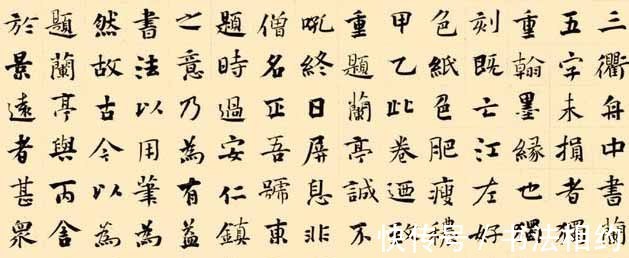 三衢舟中書
五字未損者獨
重翰墨緣也獨
刻既亡江左好
色紙色肥瘦穠
甲乙此卷迺
重題蘭亭誠不
終日屏息非
僧名正吾號東
題時過安仁鎮
之意乃為有益
書法以用筆為
然故古今以為
題蘭亭與丙舍
於景遠者甚衆
快传号 / 书法相约